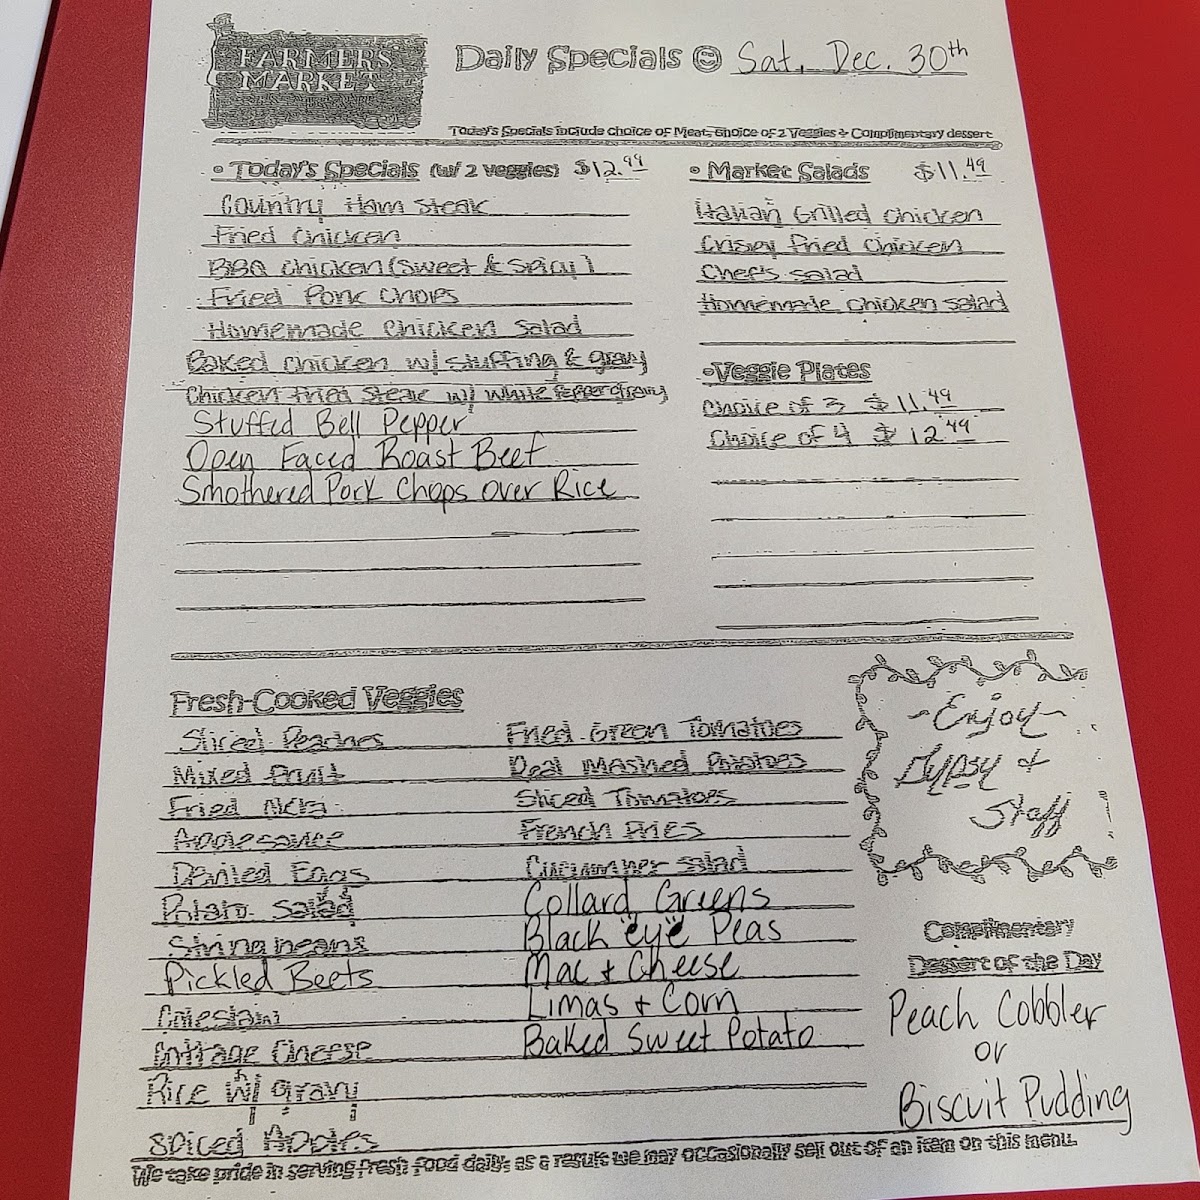 FARMERS
MARKET
Daily Specials Sat, Dec. 30th
Today's Specials include choice of Meat, choice of 2 Veggies + Complimentary dessert
• Today's Specials (w/ 2 veggies) $12.99
Country Ham Steak
Fried Chicken
BBQ Chicken (Sweet & Spicy)
Fried Pork Chops
Homemade Chicken Salad
Baked Chicken w/ stuffing & gravy
Chicken Fried Steak w/ White Pepper Gravy
Stuffed Bell Pepper
Open Faced Roast Beef
Smothered Pork Chops over Rice
• Market Salads $11.49
Italian Grilled Chicken
Crispy Fried Chicken
Chef's Salad
Homemade Chicken Salad
•Veggie Plates
Choice of 3 $11.49
Choice of 4 $12.49
Fresh-Cooked Veggies
Sliced Peaches
Mixed Fruit
Fried Okra
Applesauce
Deviled Eggs
Potato Salad
String beans
Pickled Beets
Coleslaw
Cottage Cheese
Rice w/ gravy
Spiced Apples
Fried Green Tomatoes
Real Mashed Potatoes
Sliced Tomatoes
French Fries
Cucumber Salad
Collard Greens
Black eye Peas
Mac + Cheese
Limas + Corn
Baked Sweet Potato
~Enjoy~
Gypsy +
Staff
Complimentary
Dessert of the Day
Peach Cobbler
or
Biscuit Pudding
We take pride in serving fresh food daily. as a result we may occasionally sell out of an item on this menu.